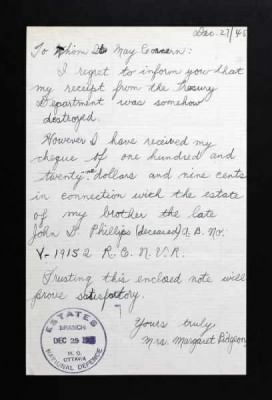 Dec. 27/45
To Whom It May Concern:
I regret to inform you that
my receipt from the Treasury
Department was somehow
destroyed.
However I have received my
cheque of one hundred and
twenty-one dollars and nine cents
in connection with the estate
of my brother the late
John D. Phillips (deceased) A.B. No.
V-19152 R.C.N.V.R.
Trusting this enclosed note will
prove satisfactory.
Yours truly,
Mrs. Margaret Pidgeon
ESTATES
BRANCH
DEC 29
H.Q.
OTTAWA
NATIONAL DEFENCE